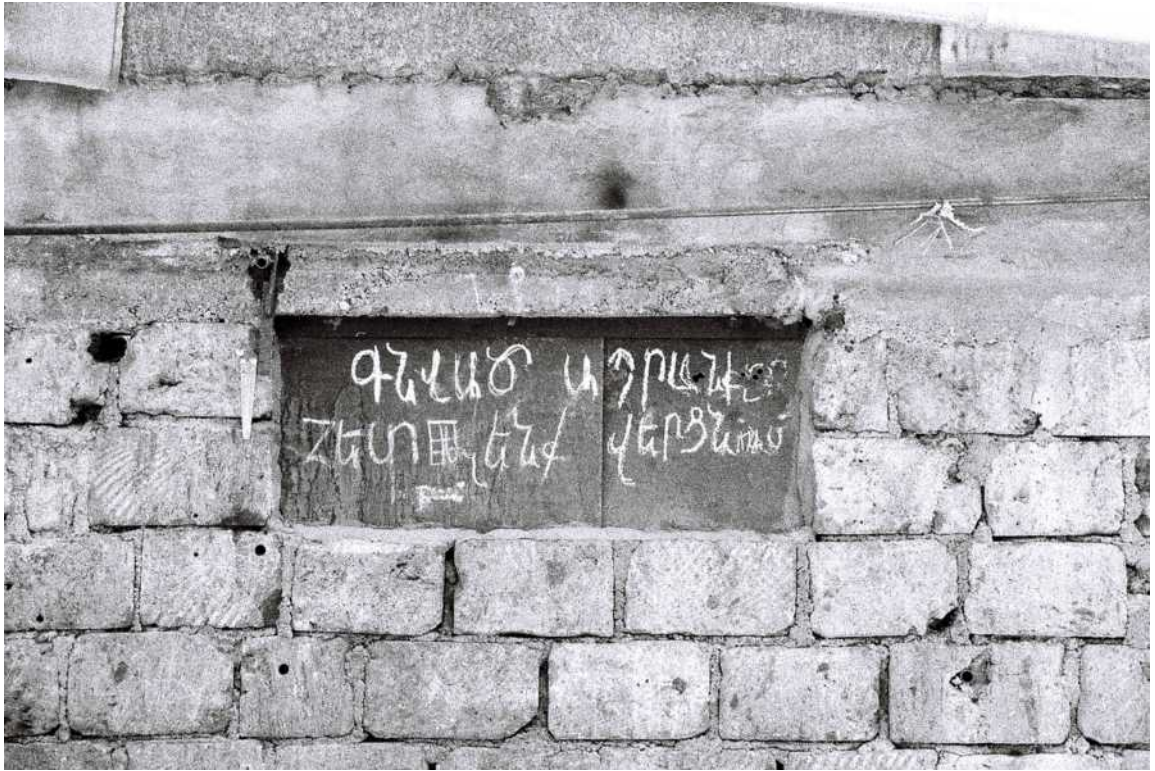 ԳՆՎԱԾ ԱՊՐԱՆՔԸ
ՀԵՏ ՉԵՆՔ ՎԵՐՑՆՈւՄ